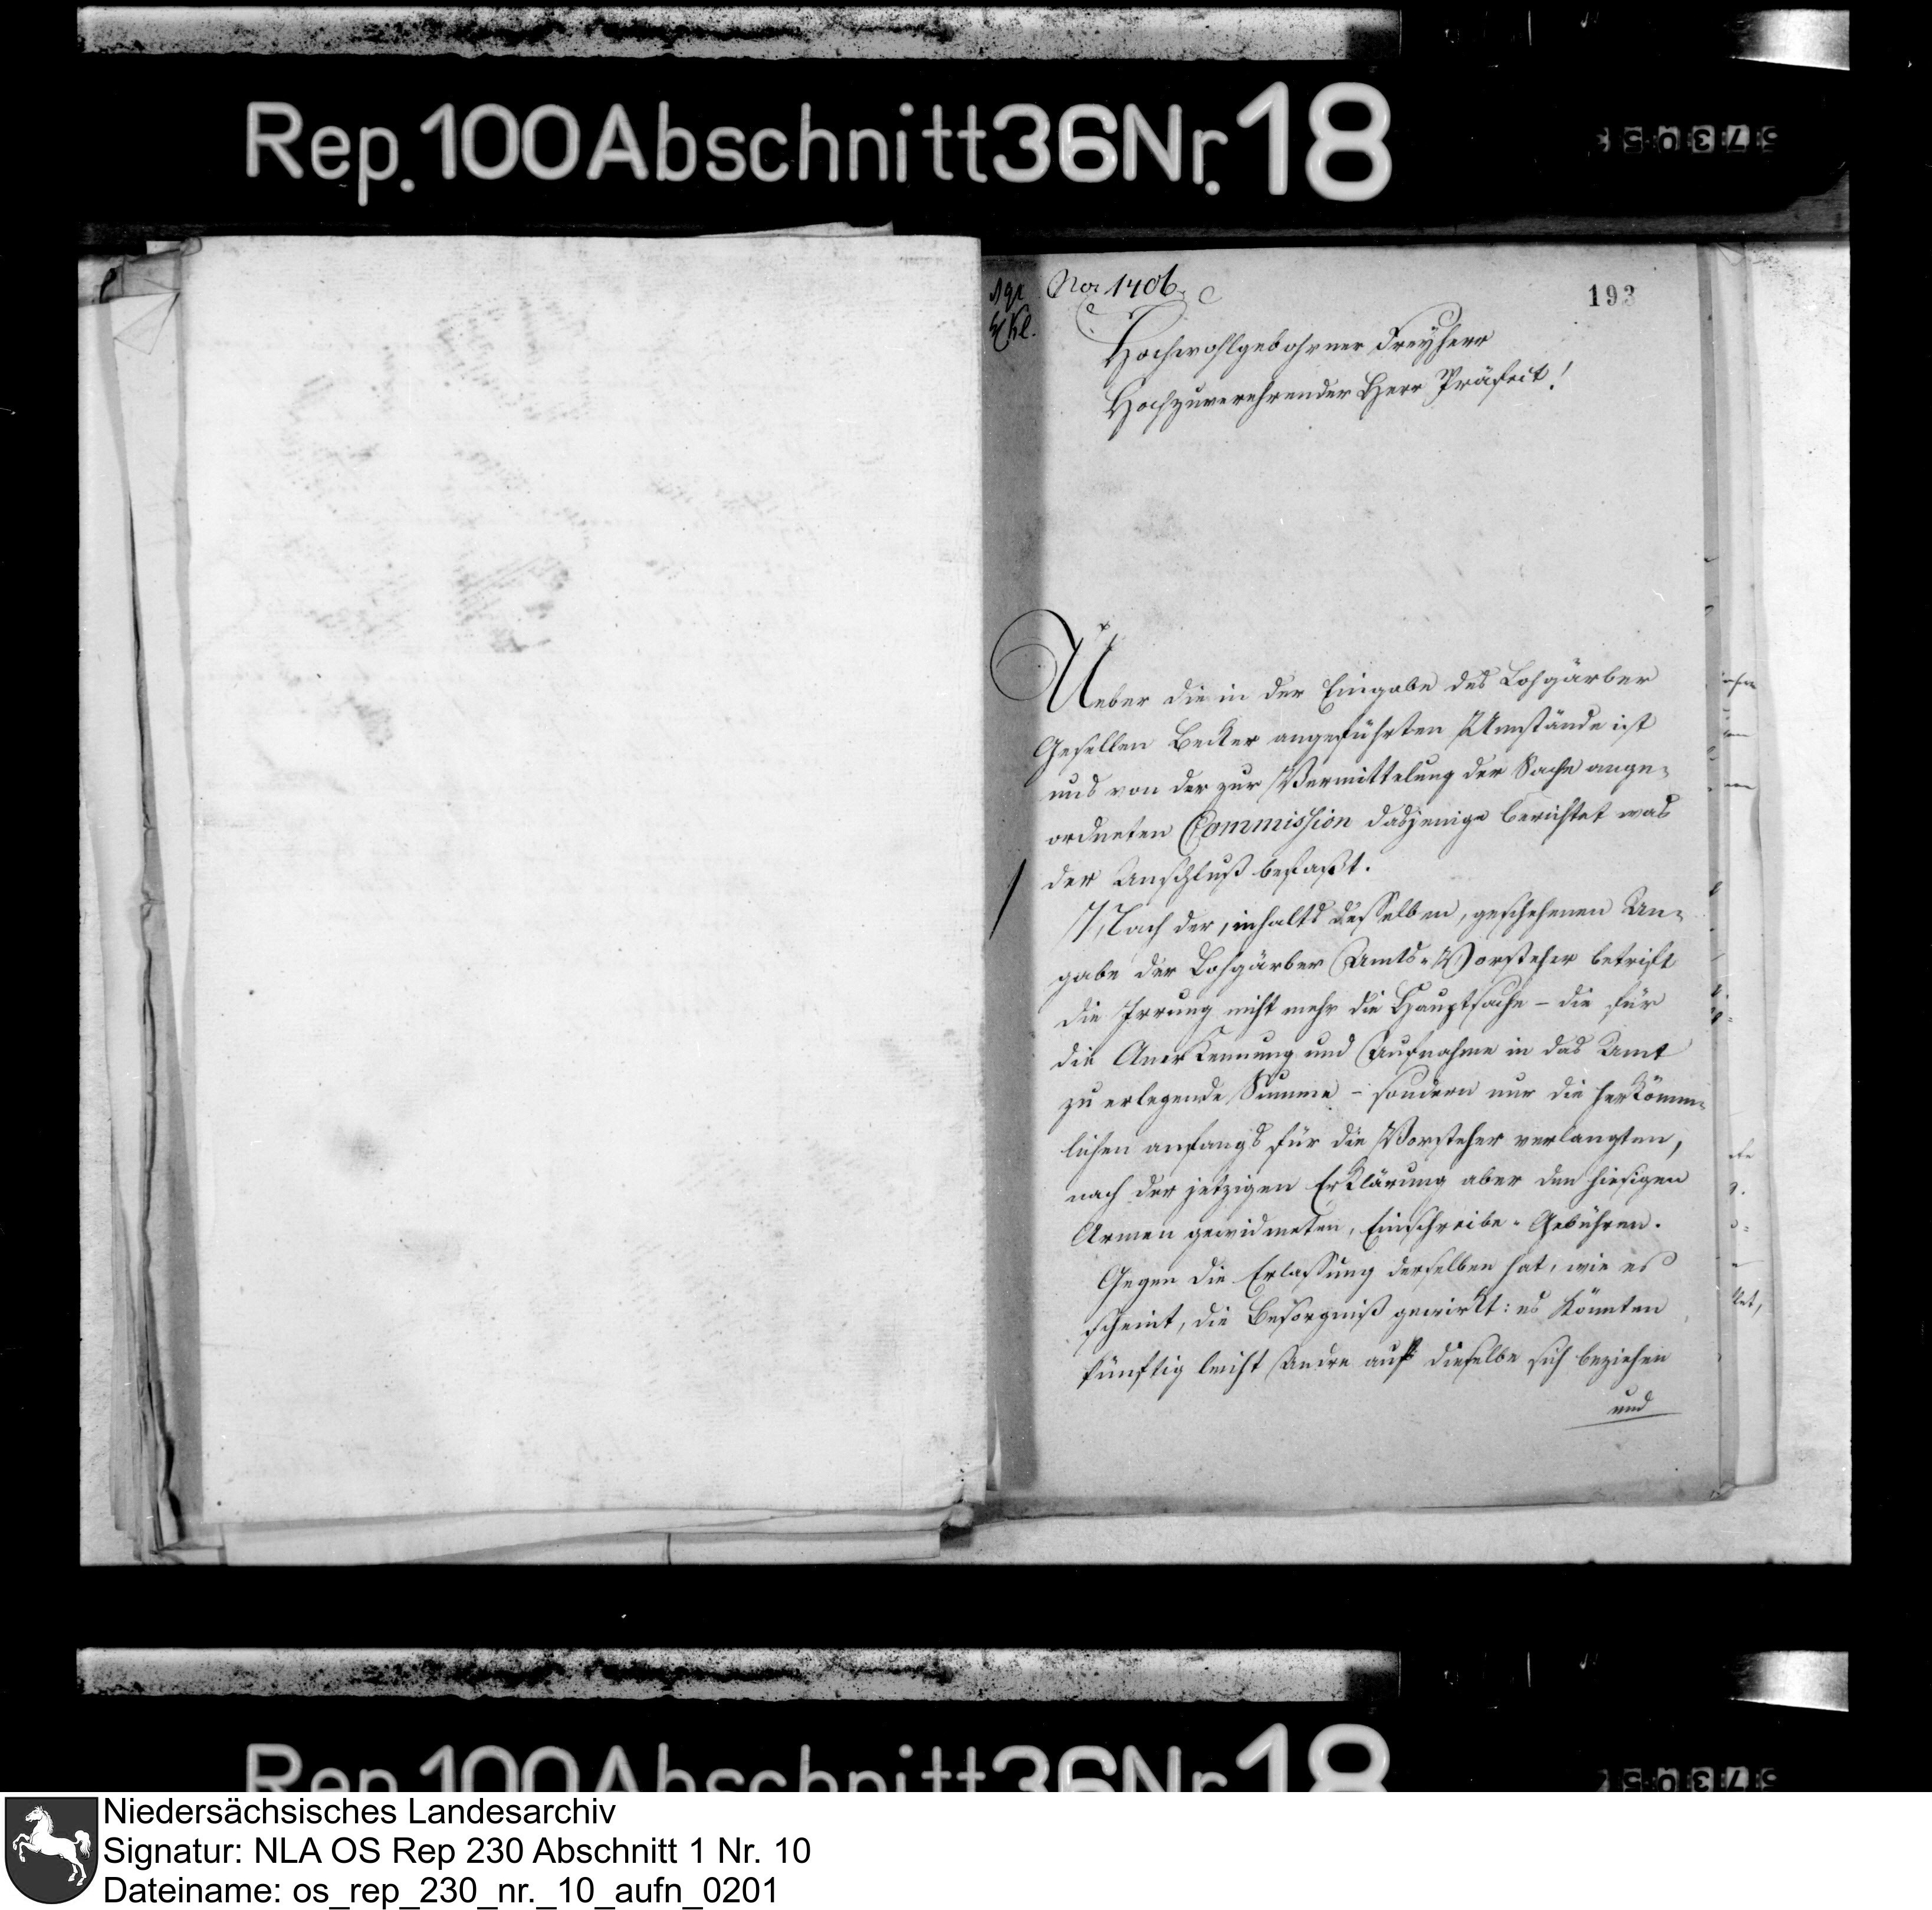 Rep. 100 Abschnitt 36 Nr. 18
No 1406.
193
Hochwohlgebohrner Freyherr
Hochzuverehrender Herr Präfect!
Ueber die in der Eingabe des Lohgärber
Gesellen Becker angeführten Umstände ist
uns von der zur Vermittelung der Sache ange-
ordneten Commission dasjenige berichtet was
der Anschluß besaßt.
Nach der, inhalts desselben, geschehenen An-
gabe der Lohgärber Amts-Vorsteher betrift
die Irrung nicht mehr die Hauptsache – die für
die Anerkennung und Aufnahme in das Amt
zu erlegende Summe – sondern nur die herkömm-
lichen anfangs für die Vorsteher verlangten,
nach der jetzigen Erklärung aber den hiesigen
Armen gewidmeten, Einschreibe-Gebühren.
Gegen die Erlassung derselben hat, wie es
scheint, die Besorgniß gewirkt: es könnten
künftig leicht Andre auf dieselbe sich beziehen
und
Rep. 100 Abschnitt 36 Nr. 18
Niedersächsisches Landesarchiv
Signatur: NLA OS Rep 230 Abschnitt 1 Nr. 10
Dateiname: os_rep_230_nr._10_aufn_0201